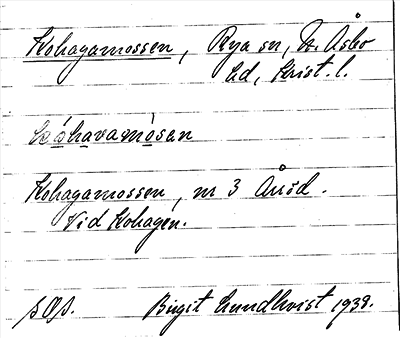 Kohagamossen, Rya sn, N. Åsbo
hd, Krist. l.
kóhavamòsen
Kohagamossen, nr 3 Åröd.
Vid Kohagen.
Birgit Lundkvist 1938.